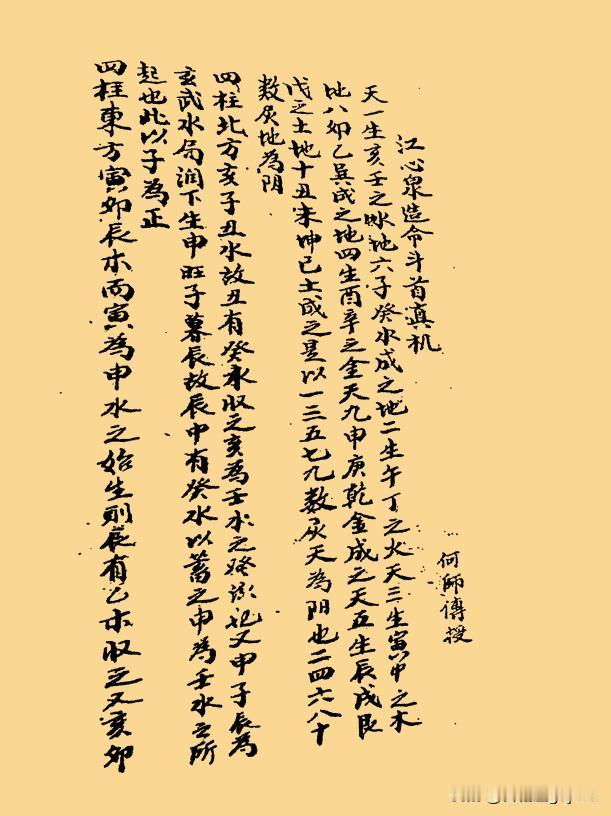 江心泉造命斗首滇机
何師傅授
天一生亥壬之水地六子癸水成之地二生午丁之火天三生寅甲之木
地八卯乙巽成之地四生酉辛之金天九申庚乾金成之天五生辰戌艮
戊之土地十丑未坤己土成之是以一三五七九数屬天為阴也二四六八十
数屬地為阴
四柱北方亥子丑水故丑有癸水収之亥為壬水之源也又甲子辰為
玄武水局润下生申旺子暮辰故辰中有癸水以蓄之申為壬水之所
起也此以子為正
四柱東方寅卯辰木而寅為申水之始生則辰有乙木収之又亥卯